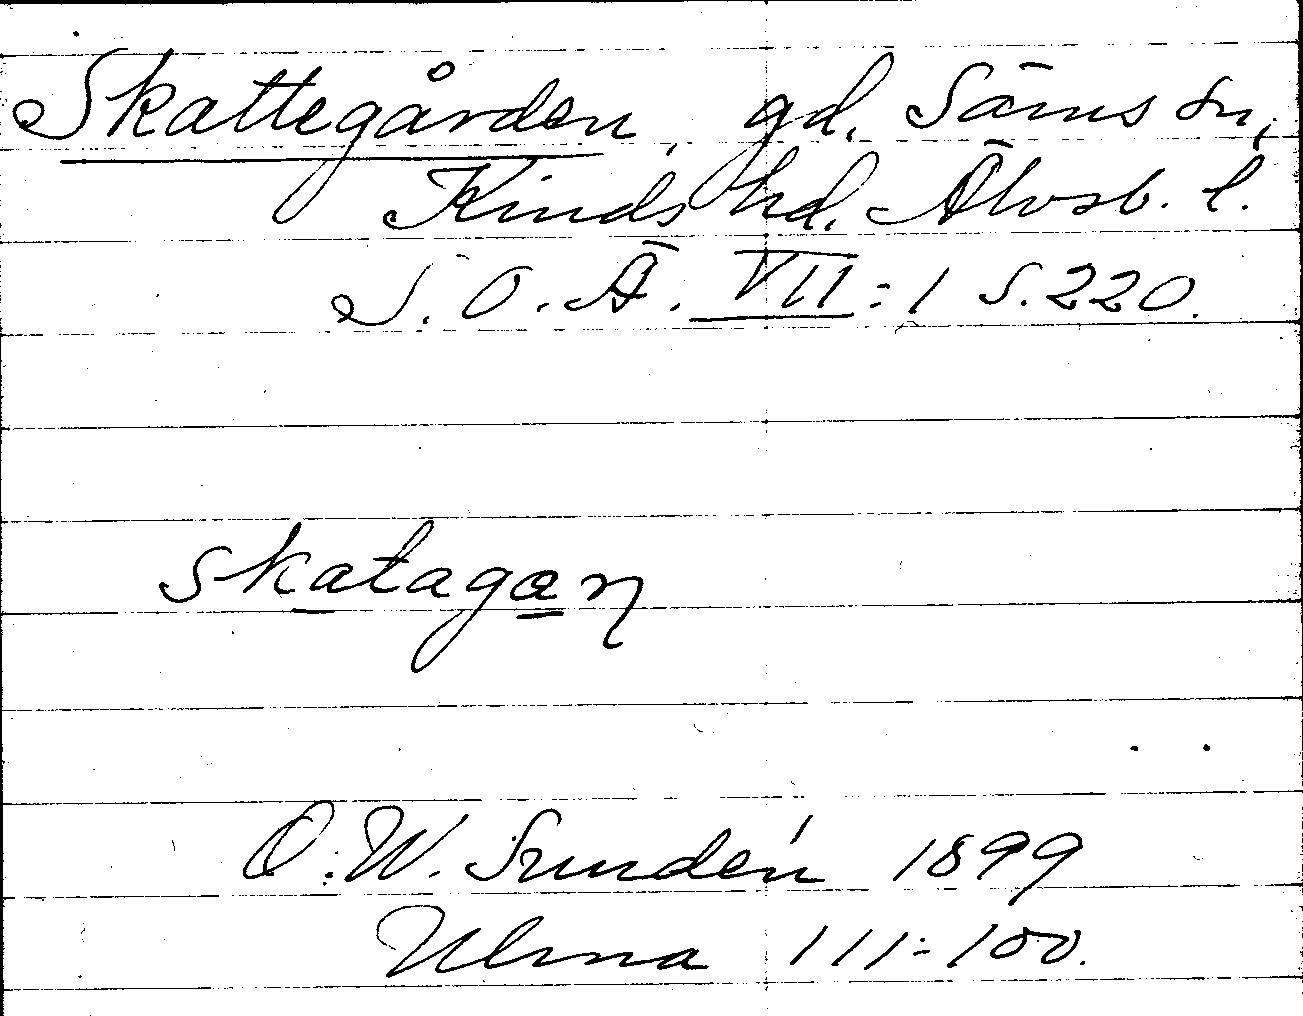 Skattegården, gd. Säms sn,
Kinds hd. Älvsb. l.
S. O. Ä. VII:1 S. 220.
skatagan
O. W. Sundén 1899
Ulma 111:100.